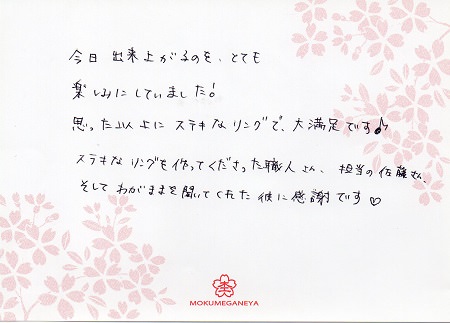 今日 出来上がるのを、とても
楽しみにしていました!
思った以上に ステキな リングで、大満足です♪
ステキな リングを作ってくださった職人さん、担当の佐藤さん、
そして わがままを聞いてくれた 彼に感謝です♡
MOKUMEGANEYA